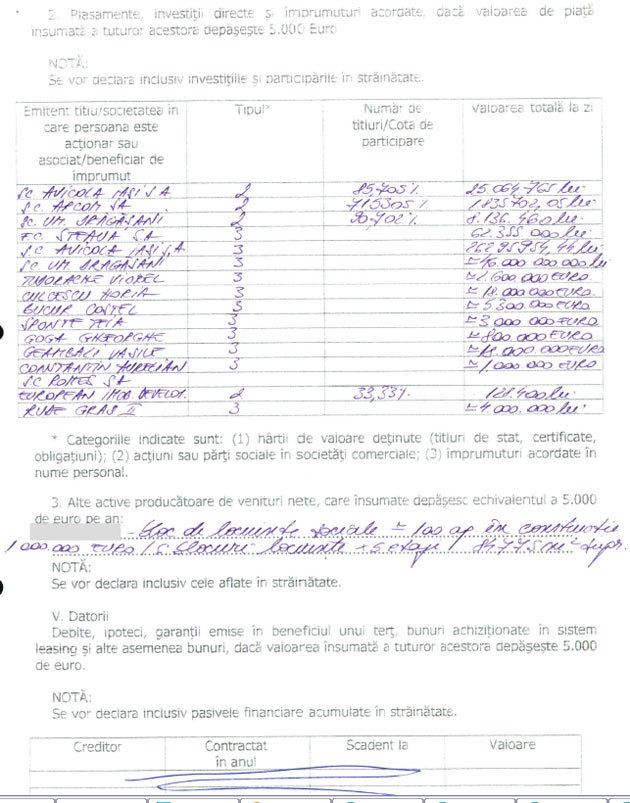 2. Plasamente, investiții directe și împrumuturi acordate, dacă valoarea de piață
însumată a tuturor acestora depășește 5.000 Euro
NOTĂ:
Se vor declara inclusiv investițiile și participările în străinătate.
Emitent titlu/societatea în care persoana este acționar sau asociat/beneficiar de împrumut Tipul* Număr de titluri/Cota de participare Valoarea totală la zi
SC AVICOLA IAȘI SA 2 85,705% 25 064 765 lei
SC ARCOM SA 2 71,5305% 1 835 702,05 lei
SC UM DRĂGĂȘANI 2 90,702% 8.136.460 lei
F.C. STEAUA SA 3 62 355 000 lei
SC AVICOLA IAȘI SA 3 26295954,44 lei
SC UM DRAGASANI 3 ≃ 16 000 000 000 lei
TUDORACHE VIOREL 3 ≃ 2.600 000 EURO
CULCESCU HORIA 3 ≃ 18.000 000 EURO
BUCUR COSTEL 3 ≃ 5 300.000 EURO
SPONTE 3 ≃ 3 000 000 EURO
GOGA GHEORGHE 3 ≃ 800.000 EURO
GEAMBALI VASILE 3 000.000 EURO
CONSTANTIN AURELIAN 3 ≃ 1 000 000 EURO
SC ROMES SA
EUROPEAN IMOB. DEVELOP. 2 33,33% 128.400 lei
GRAS II 3 ≃ 4 000.000 lei
* Categoriile indicate sunt: (1) hârtii de valoare deținute (titluri de stat, certificate,
obligațiuni); (2) acțiuni sau părți sociale în societăți comerciale; (3) împrumuturi acordate în
nume personal.
3. Alte active producătoare de venituri nete, care însumate depășesc echivalentul a 5.000
de euro pe an:
- bloc de locuințe sociale ≃ 100 ap. în construcție
1 000.000 EURO / 5 blocuri locuințe 5 etaje / 84775 m² supr.
NOTĂ:
Se vor declara inclusiv cele aflate în străinătate.
V. Datorii
Debite, ipoteci, garanții emise în beneficiul unui terț, bunuri achiziționate în sistem
leasing și alte asemenea bunuri, dacă valoarea însumată a tuturor acestora depășește 5.000
de euro.
NOTĂ:
Se vor declara inclusiv pasivele financiare acumulate în străinătate.
Creditor Contractat în anul Scadent la Valoare